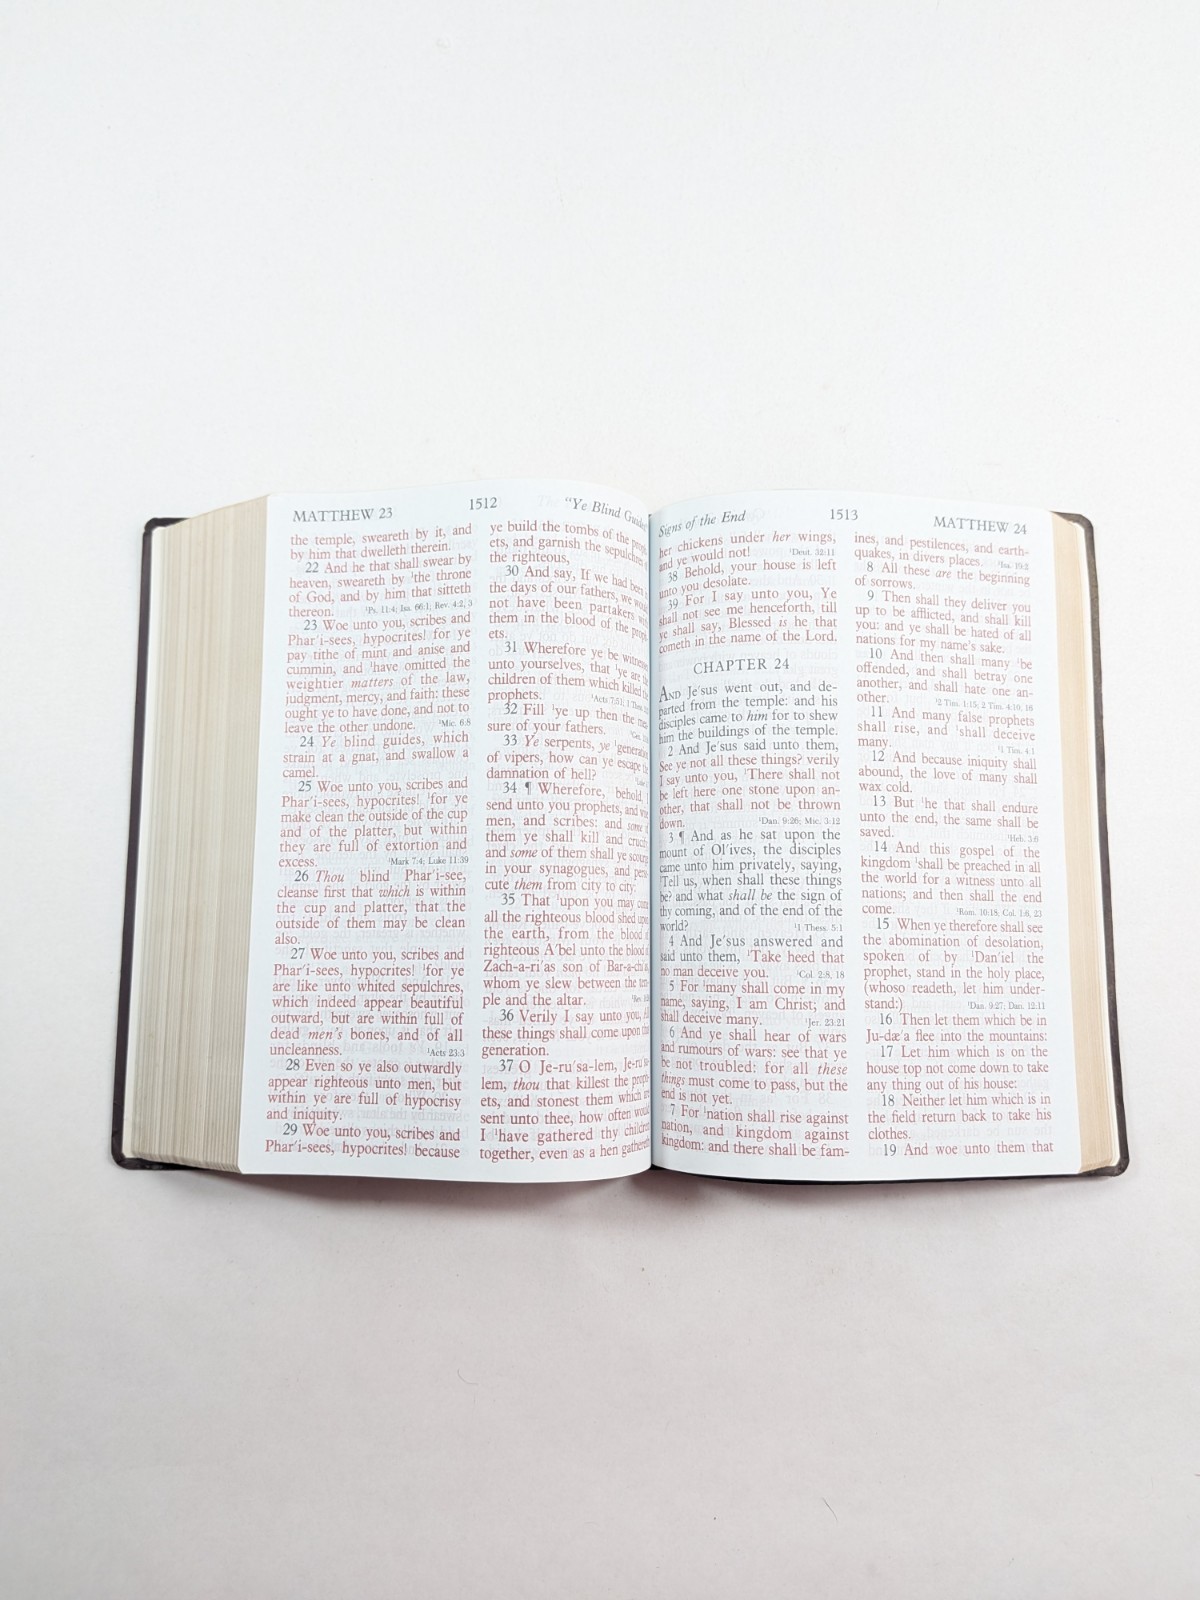 MATTHEW 23
1512
"Ye Blind Guides"
the temple, sweareth by it, and
by him that dwelleth therein.
22 And he that shall swear by
heaven, sweareth by ¹the throne
of God, and by him that sitteth
thereon. ¹Ps. 11:4; Isa. 66:1; Rev. 4:2, 3
23 Woe unto you, scribes and
Phar′i-sees, hypocrites! for ye
pay tithe of mint and anise and
cummin, and ¹have omitted the
weightier matters of the law,
judgment, mercy, and faith: these
ought ye to have done, and not to
leave the other undone. ¹Mic. 6:8
24 Ye blind guides, which
strain at a gnat, and swallow a
camel.
25 Woe unto you, scribes and
Phar′i-sees, hypocrites! ¹for ye
make clean the outside of the cup
and of the platter, but within
they are full of extortion and
excess. ¹Mark 7:4; Luke 11:39
26 Thou blind Phar′i-see,
cleanse first that which is within
the cup and platter, that the
outside of them may be clean
also.
27 Woe unto you, scribes and
Phar′i-sees, hypocrites! ¹for ye
are like unto whited sepulchres,
which indeed appear beautiful
outward, but are within full of
dead men's bones, and of all
uncleanness. ¹Acts 23:3
28 Even so ye also outwardly
appear righteous unto men, but
within ye are full of hypocrisy
and iniquity.
29 Woe unto you, scribes and
Phar′i-sees, hypocrites! because
ye build the tombs of the proph-
ets, and garnish the sepulchres of
the righteous,
30 And say, If we had been in
the days of our fathers, we would
not have been partakers with
them in the blood of the proph-
ets.
31 Wherefore ye be witnesses
unto yourselves, that ¹ye are the
children of them which killed the
prophets. ¹Acts 7:51; 1 Thes.
32 Fill ¹ye up then the mea-
sure of your fathers.
33 Ye serpents, ye ¹generation
of vipers, how can ye escape the
damnation of hell?
34 ¶ Wherefore, ¹behold, I
send unto you prophets, and wise
men, and scribes: and some of
them ye shall kill and crucify;
and some of them shall ye scourge
in your synagogues, and perse-
cute them from city to city:
35 That ¹upon you may come
all the righteous blood shed upon
the earth, from the blood of
righteous A′bel unto the blood of
Zach-a-ri′as son of Bar-a-chi′as,
whom ye slew between the tem-
ple and the altar.
36 Verily I say unto you, All
these things shall come upon this
generation.
37 O Je-ru′sa-lem, Je-ru′sa-
lem, thou that killest the proph-
ets, and stonest them which are
sent unto thee, how often would
I ¹have gathered thy children
together, even as a hen gathereth
Signs of the End
1513
MATTHEW 24
her chickens under her wings,
and ye would not! ¹Deut. 32:11
38 Behold, your house is left
unto you desolate.
39 For I say unto you, Ye
shall not see me henceforth, till
ye shall say, Blessed is he that
cometh in the name of the Lord.
CHAPTER 24
AND Je′sus went out, and de-
parted from the temple: and his
disciples came to him for to shew
him the buildings of the temple.
2 And Je′sus said unto them,
See ye not all these things? verily
I say unto you, ¹There shall not
be left here one stone upon an-
other, that shall not be thrown
down. ¹Dan. 9:26; Mic. 3:12
3 ¶ And as he sat upon the
mount of Ol′ives, the disciples
came unto him privately, saying,
¹Tell us, when shall these things
be? and what shall be the sign of
thy coming, and of the end of the
world? ¹1 Thess. 5:1
4 And Je′sus answered and
said unto them, ¹Take heed that
no man deceive you. ¹Col. 2:8, 18
5 For ¹many shall come in my
name, saying, I am Christ; and
shall deceive many. ¹Jer. 23:21
6 And ye shall hear of wars
and rumours of wars: see that ye
be not troubled: for all these
things must come to pass, but the
end is not yet.
7 For ¹nation shall rise against
nation, and kingdom against
kingdom: and there shall be fam-
ines, and pestilences, and earth-
quakes, in divers places. ¹Isa. 19:2
8 All these are the beginning
of sorrows.
9 Then shall they deliver you
up to be afflicted, and shall kill
you: and ye shall be hated of all
nations for my name's sake.
10 And then shall many ¹be
offended, and shall betray one
another, and shall hate one an-
other. ¹2 Tim. 1:15; 2 Tim. 4:10, 16
11 And many false prophets
shall rise, and ¹shall deceive
many. ¹1 Tim. 4:1
12 And because iniquity shall
abound, the love of many shall
wax cold.
13 But ¹he that shall endure
unto the end, the same shall be
saved. ¹Heb. 3:6
14 And this gospel of the
kingdom ¹shall be preached in all
the world for a witness unto all
nations; and then shall the end
come. ¹Rom. 10:18; Col. 1:6, 23
15 When ye therefore shall see
the abomination of desolation,
spoken of by ¹Dan′iel the
prophet, stand in the holy place,
(whoso readeth, let him under-
stand:) ¹Dan. 9:27; Dan. 12:11
16 Then let them which be in
Ju-dæ′a flee into the mountains:
17 Let him which is on the
house top not come down to take
any thing out of his house:
18 Neither let him which is in
the field return back to take his
clothes.
19 And woe unto them that